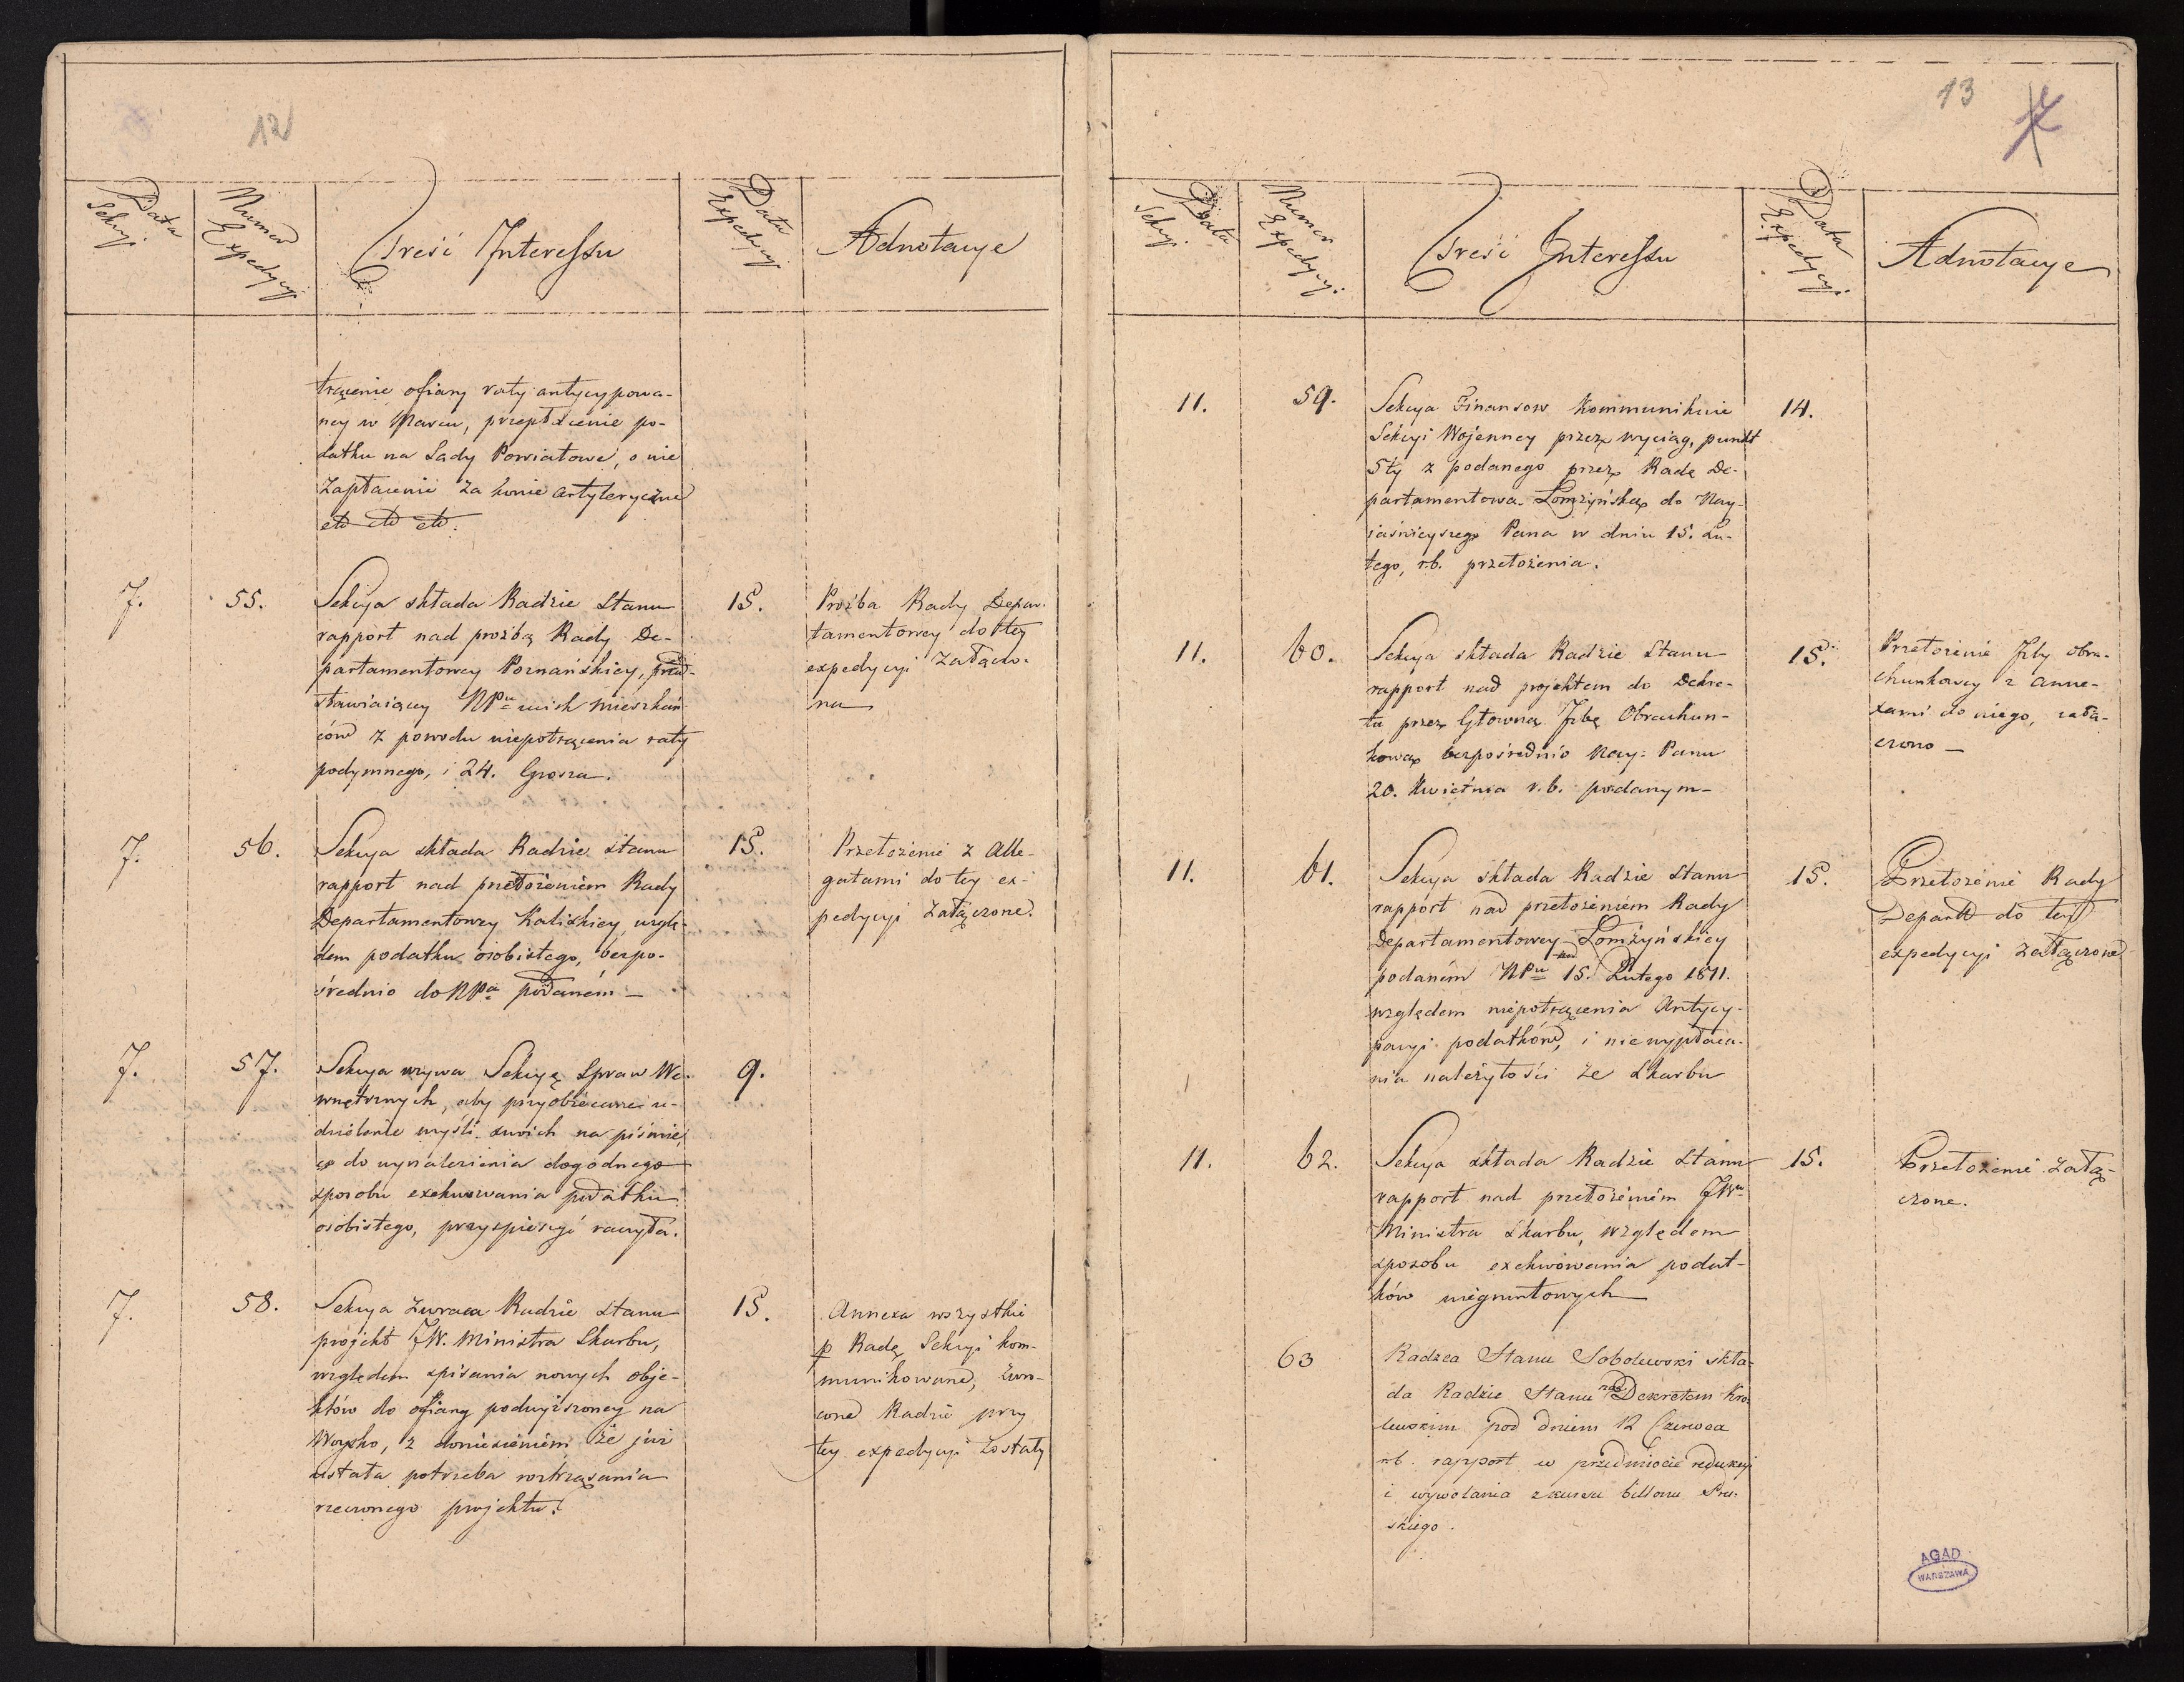 12
Data Sekcyi
Numer Expedycyi
Treść Interessu
Data Expedycyi
Adnotacye
trącenie ofiary raty antycypowa-
ney w Marcu, przepłacenie po-
datku na Sądy Powiatowe, o nie
zapłacenie za konie artyleryczne
etc etc etc.
7.
55.
Sekcya składa Radzie Stanu
rapport nad proźbą Rady De-
partamentowey Poznańskiey, przed-
stawiaiącey NPu ucisk mieszkań-
ców z powodu niepotrącenia raty
podymnego, i 24. Grosza.
15.
Prośba Rady Depar-
tamentowey do tey
expedycyi załączo-
na
7.
56.
Sekcya składa Radzie Stanu
rapport nad przełożeniem Rady
Departamentowey Kaliskiey, wzglę-
dem podatku osobistego, bezpo-
średnio do NPa podaném
15.
Przełożenie z Alle-
gatami do tey ex-
pedycyi załączone.
7.
57.
Sekcya wzywa Sekcyę Spraw We-
wnętrznych, aby przyobiecane u-
dzielenie myśli swoich na piśmie,
co do wynalezienia dogodnego
sposobu exekwowania podatku
osobistego, przyspieszyć raczyła.
9.
7.
58.
Sekcya zwraca Radzie Stanu
projekt JW. Ministra Skarbu,
względem spisania nowych obje-
któw do ofiary podwyższoney na
Woysko, z doniesieniem że już
ustała potrzeba roztrząsania
rzeczonego projektu.
15.
Annexa wszystkie
p Radę Sekcyi kom-
munikowane, zwró-
cone Radzie przy
tey expedycyi zostały
13
Data Sekcyi
Numer Expedycyi.
Treść Interessu
Data Expedycyi.
Adnotacye
11.
59.
Sekcya Finansow kommunikuie
Sekcyi Wojenney przez wyciąg, punkt
5ty z podanego przez Radę De-
partamentową Łomżyńską do Nay-
iaśnieyszego Pana w dniu 15. Lu-
tego, r.b. przełożenia.
14.
11.
60.
Sekcya składa Radzie Stanu
rapport nad projektem do Dekre-
tu przez Głowną Jzbę Obrachun-
kową bezpośrednio Nay: Panu
20. Kwietnia r.b. podanym
15.
Przełożenie Jzby obra-
chunkowey z anne-
xami do niego, załą-
czono
11.
61.
Sekcya składa Radzie Stanu
rapport nad przełożeniem Rady
Departamentowey Łomżyńskiey
podaném NPu 15. Lutego 1811.
względem niepotrącenia Antycy-
pacyi podatków, i niewypłaca-
nia należytości ze Skarbu
15.
Przełożenie Rady
Departt do tey
expedycyi załączone
11.
62.
Sekcya składa Radzie Stanu
rapport nad przełożeniem JWu
Ministra Skarbu, względem
sposobu exekwowania podat-
ków niegruntowych
15.
Przełożenie załą-
czone.
63
Radzca Stanu Sobolewski skła-
da Radzie Stanu nad Dekretem Kró-
lewskim pod dniem 12 Czerwca
r.b. rapport w przedmiocie redukcyi
i wywołania z kursu billonu Pru-
skiego.
AGAD
WARSZAWA